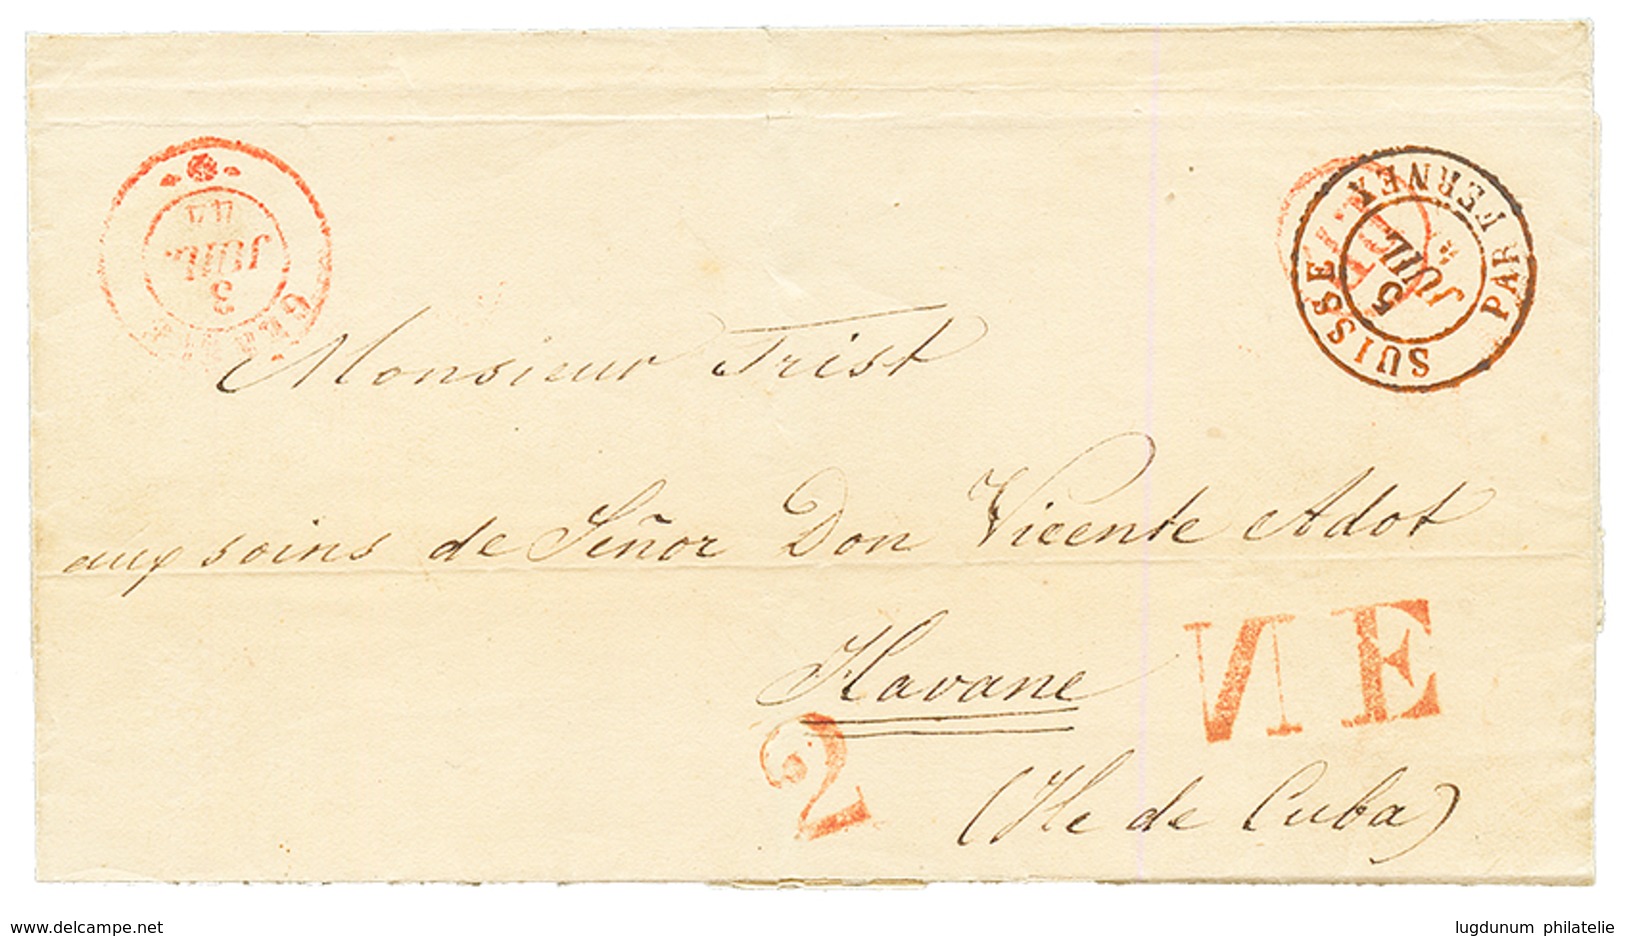 GENÈVE
3
JUIL.
44
SUISSE PAR FERNEX
5
JUIL
Monsieur Trist
aux soins de Señor Don Vicente Adot
Havane
NE
2
(Ile de Cuba)
www.delcampe.net
lugdunum philatelie